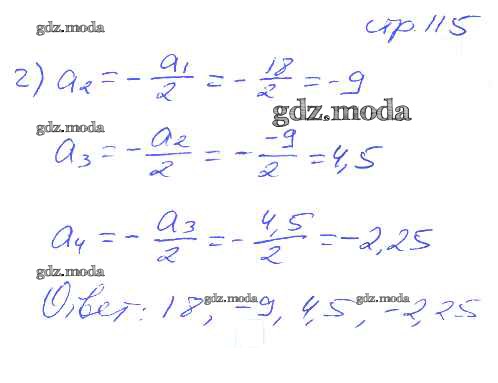 gdz.moda
стр. 115
2) a₂ = -a₁/2 = -18/2 = -9
gdz.moda
gdz.moda
a₃ = -a₂/2 = - -9/2 = 4,5
a₄ = -a₃/2 = -4,5/2 = -2,25
gdz.moda
Ответ: 18, -9, 4,5, -2,25
gdz.moda
gdz.moda